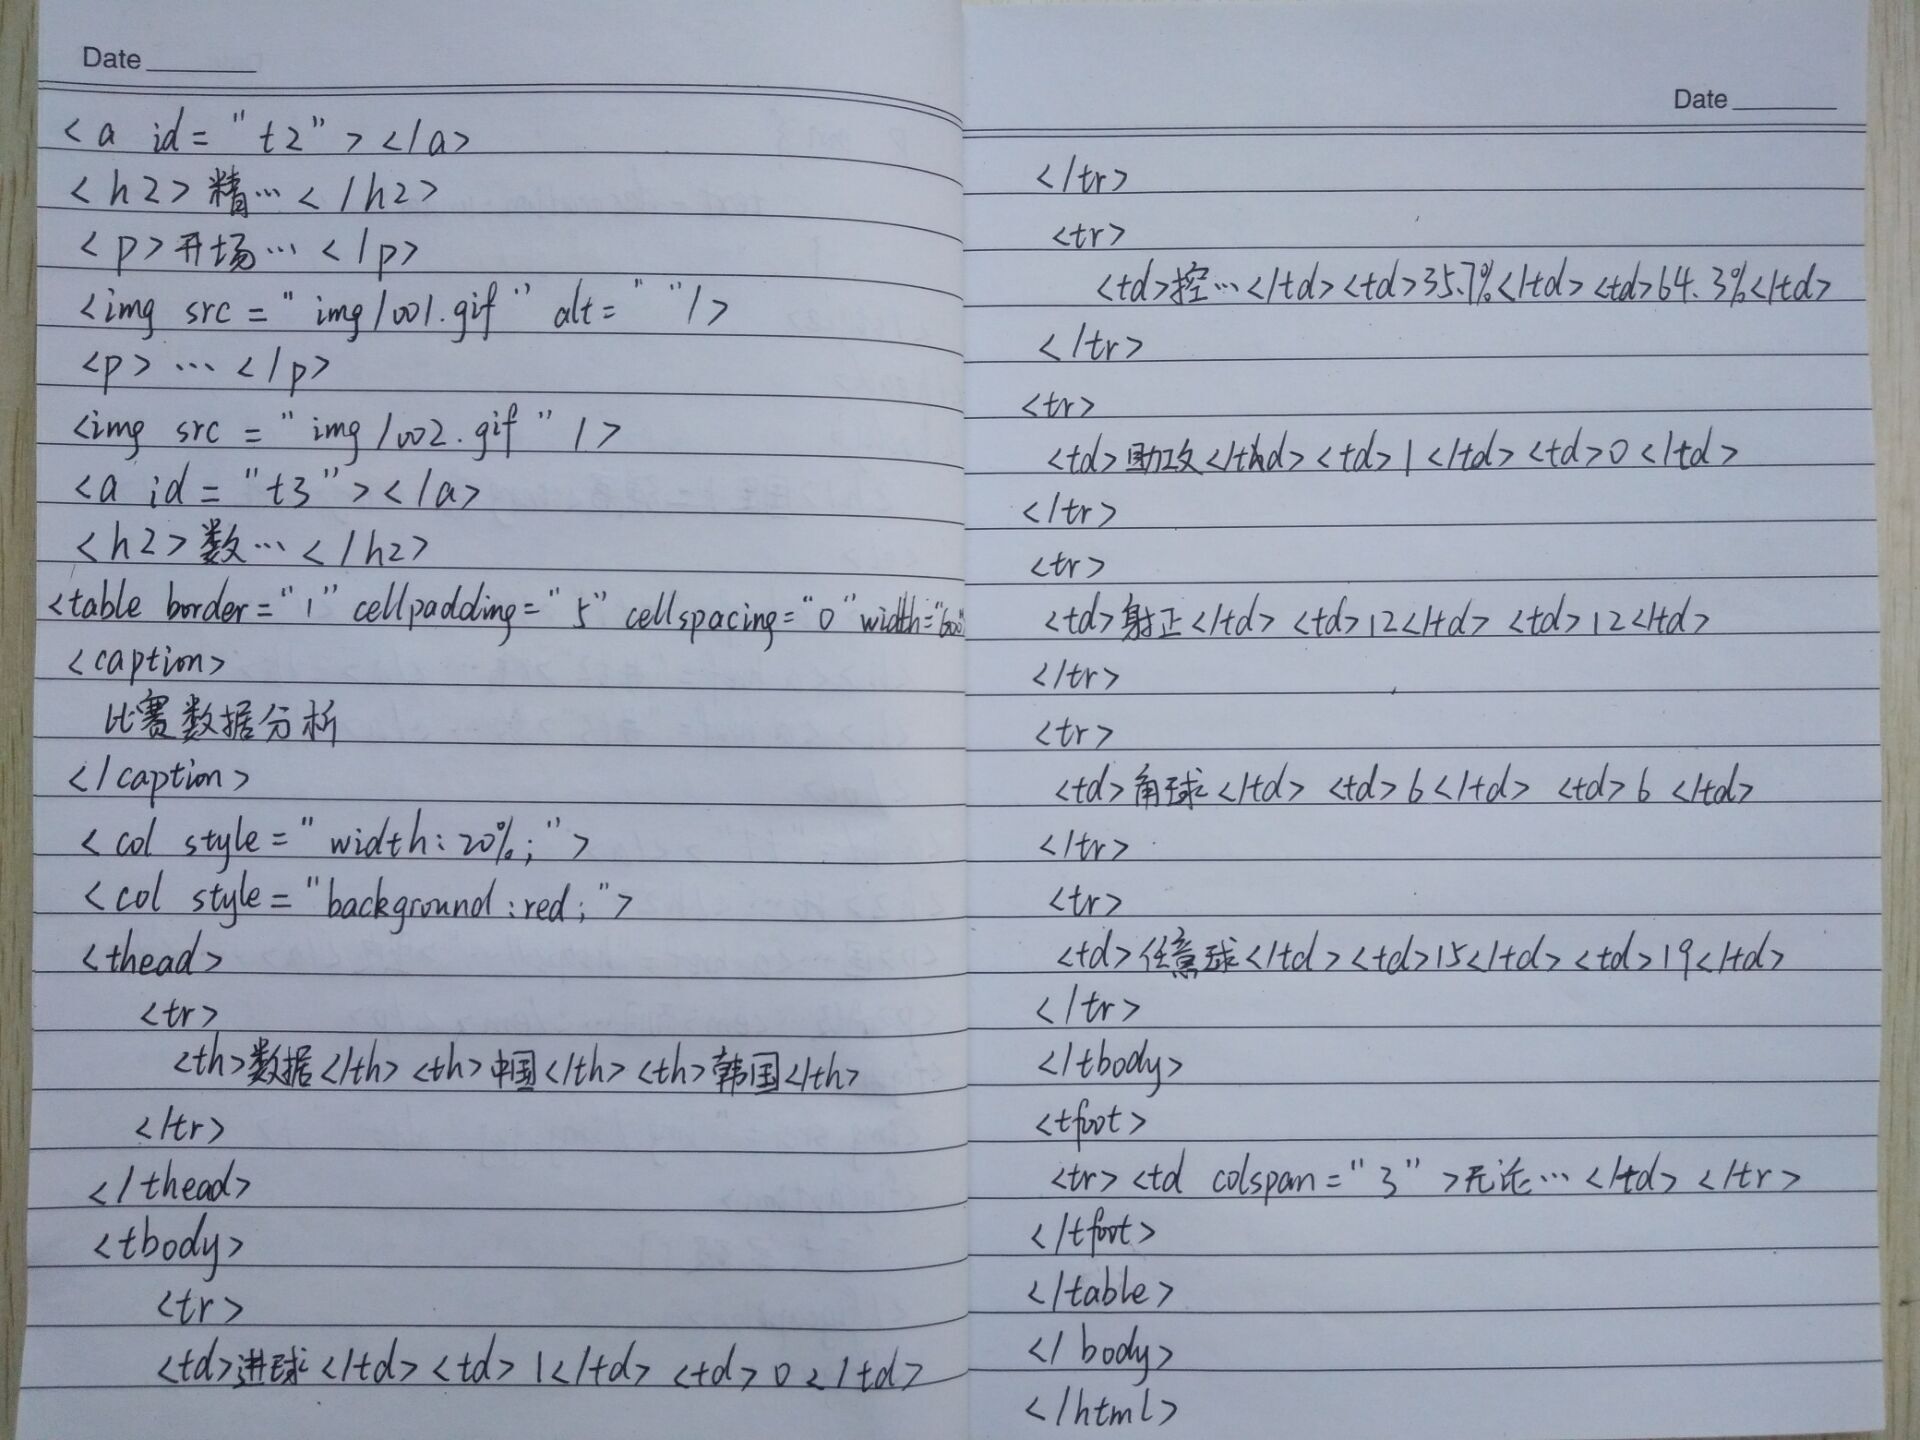 Date
<a id="t2"></a>
<h2>精…</h2>
<p>开场…</p>
<img src="img/001.gif" alt=" "/>
<p>…</p>
<img src="img/002.gif"/>
<a id="t3"></a>
<h2>数…</h2>
<table border="1" cellpadding="5" cellspacing="0" width="600"
<caption>
比赛数据分析
</caption>
<col style="width:20%;">
<col style="background:red;">
<thead>
<tr>
<th>数据</th><th>中国</th><th>韩国</th>
</tr>
</thead>
<tbody>
<tr>
<td>进球</td><td>1</td><td>0</td>
Date
</tr>
<tr>
<td>控…</td><td>35.7%</td><td>64.3%</td>
</tr>
<tr>
<td>助攻</td><td>1</td><td>0</td>
</tr>
<tr>
<td>射正</td><td>12</td><td>12</td>
</tr>
<tr>
<td>角球</td><td>6</td><td>6</td>
</tr>
<tr>
<td>任意球</td><td>15</td><td>19</td>
</tr>
</tbody>
<tfoot>
<tr><td colspan="3">无论…</td></tr>
</tfoot>
</table>
</body>
</html>